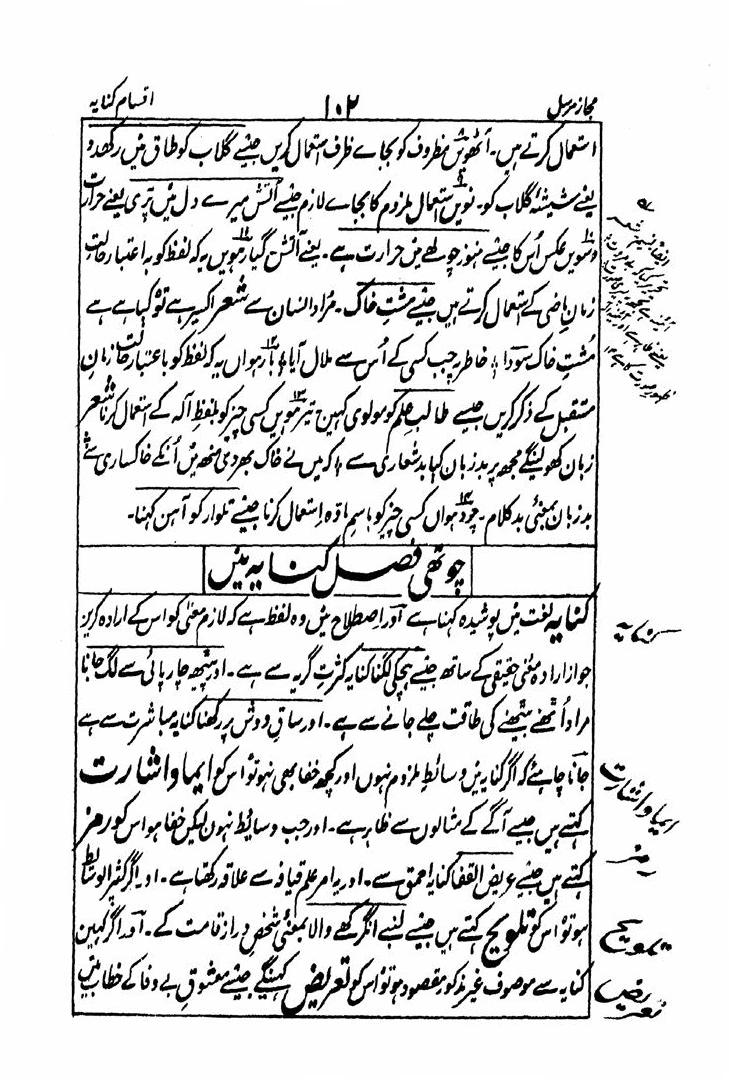 مجاز مرسل
۱۰۲
اقسام کنایہ
استعمال کرتے ہیں۔ آٹھویں مظروف کو بجاے ظرف استعمال کریں جیسے گلاب کو طاق میں رکھدو
یعنے شیشۂ گلاب کو۔ نویں استعمال ملزوم کا بجاے لازم جیسے آتش میرے دل میں تری یعنے حرارت
دسویں عکس اُس کا جیسے ہنوز چولھے میں حرارت ہے۔ یعنے آتش گیارھویں یہ کہ لفظ کو بہ اعتبار حالتِ
زمانِ ماضی کے استعمال کرتے ہیں جیسے مشتِ خاک۔ مراد انسان سے شعر اکسیر ہے تو کیا ہے ہے
مُشتِ خاک سودا؛ خاطر پہ جب کسی کے اُس سے ملال آیا؛ بارہواں یہ کہ لفظ کو باعتبار حالت زمانِ
مستقبل کے ذکر کریں جیسے طالب علم کو مولوی کہیں۔ تیرھویں کسی چیز کو بلفظ آلہ کے استعمال کرنا شعر
زبان کھولینگے مجھ پر بد زبان کیا بد شعاری سے؛ کہ میں نے خاک بھر دی منھ میں اُنکے خاکساری سے
بد زبان بمعنیٔ بد کلام۔ چودہواں کسی چیز کو باسمِ مادّہ اِستعمال کرنا جیسے تلوار کو آہن کہنا۔
چوتھی فصل کنایہ میں
کنایہ لغت میں پوشیدہ کہنا ہے اور اِصطلاح میں وہ لفظ ہے کہ لازم معنیٰ کو اس کے ارادہ کریں
جواز ارادہ معنیٔ حقیقی کے ساتھ جیسے ہچکی لگنا کنایہ کثرتِ گریہ سے ہے۔ اور پیٹھ چارپائی سے لگ جانا
مراد اُٹھنے بیٹھنے کی طاقت چلے جانے سے ہے۔ اور ساق و دوش پر رکھنا کنایہ مباشرت سے ہے
جاننا چاہیئے کہ اگر کنایہ میں وسائط ملزوم نہوں اور کچھ خفا بھی نہو تو اس کو ایما و اشارت
کہتے ہیں جیسے آگے کے مثالوں سے ظاہر ہے۔ اور جب وسائط نہوں لیکن خفا ہو اس کو رمز
کہتے ہیں جیسے عریض القفا کنایہ احمق سے۔ اور یہ امر علم قیافہ سے علاقہ رکھتا ہے۔ اور اگر کثیر الوسائط
ہو تو اس کو تلویح کہتے ہیں جیسے لنبے انگرکھے والا بمعنیٔ شخص دراز قامت کے۔ اور اگر کہیں
کنایہ سے موصوف غیر مذکور مقصود ہو تو اس کو تعریض کہینگے جیسے معشوقِ بے وفا کے خطاب میں
کنایہ
ایما و اشارت
رمز
تلویح
تعریض